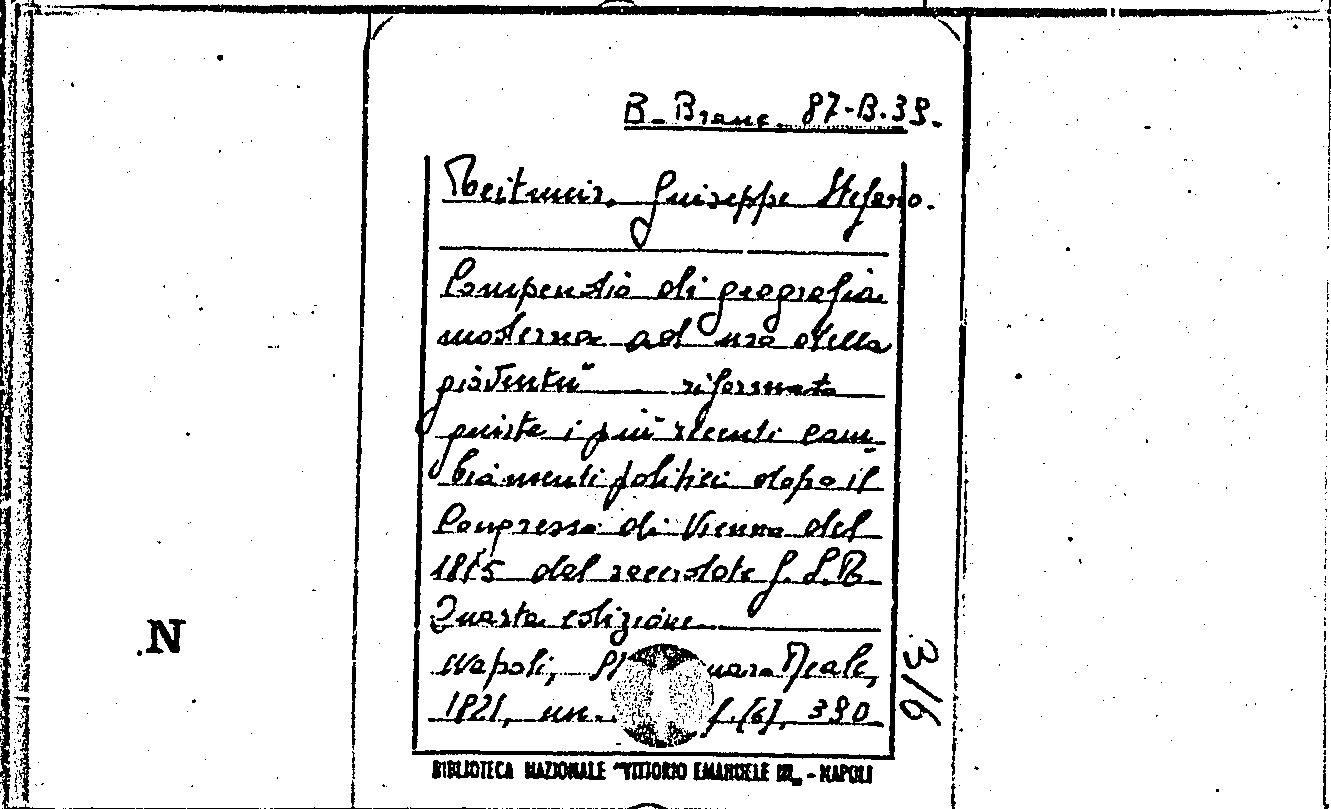 B. Branc. 87-B.39.
Giuseppe Stefano.
Compendio di geografia
moderna ad uso della
gioventù riformata
giusta i più recenti cam-
biamenti politici dopo il
Congresso di Vienna del
1815 del sacerdote G. S. R.
Quarta edizione
Napoli, Reale,
1821, un. [6], 390
316
N
BIBLIOTECA NAZIONALE "VITTORIO EMANUELE III" - NAPOLI